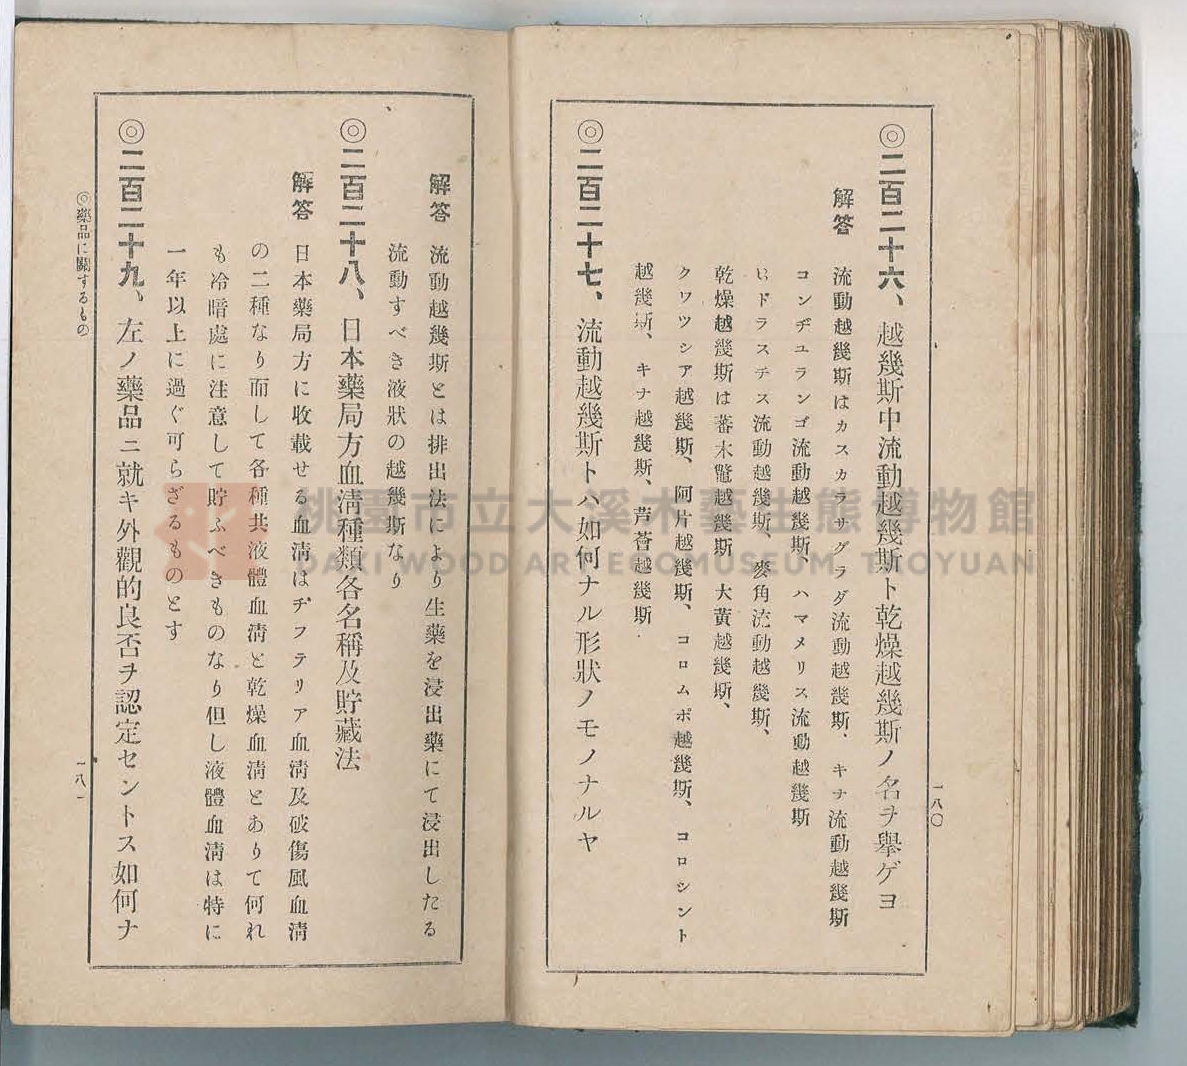 ◎二百二十六、越幾斯中流動越幾斯ト乾燥越幾斯ノ名ヲ擧ゲヨ
解答 流動越幾斯はカスカラサグラダ流動越幾斯、キナ流動越幾斯
コンヂユランゴ流動越幾斯、ハマメリス流動越幾斯
ヒドラステス流動越幾斯、麥角流動越幾斯、
乾燥越幾斯は蕃木鼈越幾斯 大黃越幾斯、
クワツシア越幾斯、阿片越幾斯、コロムボ越幾斯、コロシント
越幾斯、キナ越幾斯、芦薈越幾斯
◎二百二十七、流動越幾斯トハ如何ナル形狀ノモノナルヤ
一八〇
解答 流動越幾斯とは排出法により生藥を浸出藥にて浸出したる
流動すべき液狀の越幾斯なり
◎二百二十八、日本藥局方血淸種類各名稱及貯藏法
解答 日本藥局方に收載せる血淸はヂフテリア血淸及破傷風血淸
の二種なり而して各種共液體血淸と乾燥血淸とありて何れ
も冷暗處に注意して貯ふべきものなり但し液體血淸は特に
一年以上に過ぐ可らざるものとす
◎二百二十九、左ノ藥品ニ就キ外觀的良否ヲ認定セントス如何ナ
◎藥品に關するもの
一八一
桃園市立大溪木藝生態博物館
DAXI WOOD ART ECOMUSEUM TAOYUAN